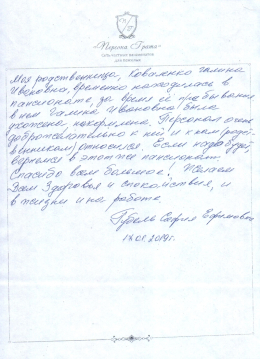 «Персона Грата»
Моя родственница, Коваленко Галина
Ивановна, временно находилась в
пансионате, за время её пребывания
в нем Галина Ивановна была
ухожена, накормлена. Персонал очень
доброжелательно к ней и к нам (родст-
венникам) относился. Если надо будет,
вернемся в этот же пансионат.
Спасибо вам большое! Желаем
Вам здоровья и спокойствия, и
в жизни и на работе.
София Ефимовна
2019г.